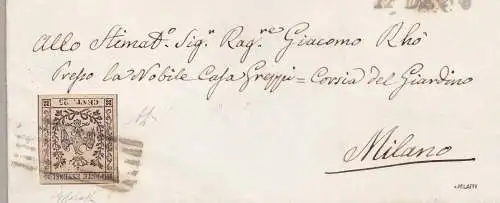 Allo Stimat.º Sig.ⁿ Rag.ʳᵉ Giacomo Rhò
Presso la Nobile Casa Greppi = Corsia del Giardino
CENT. 25
Milano